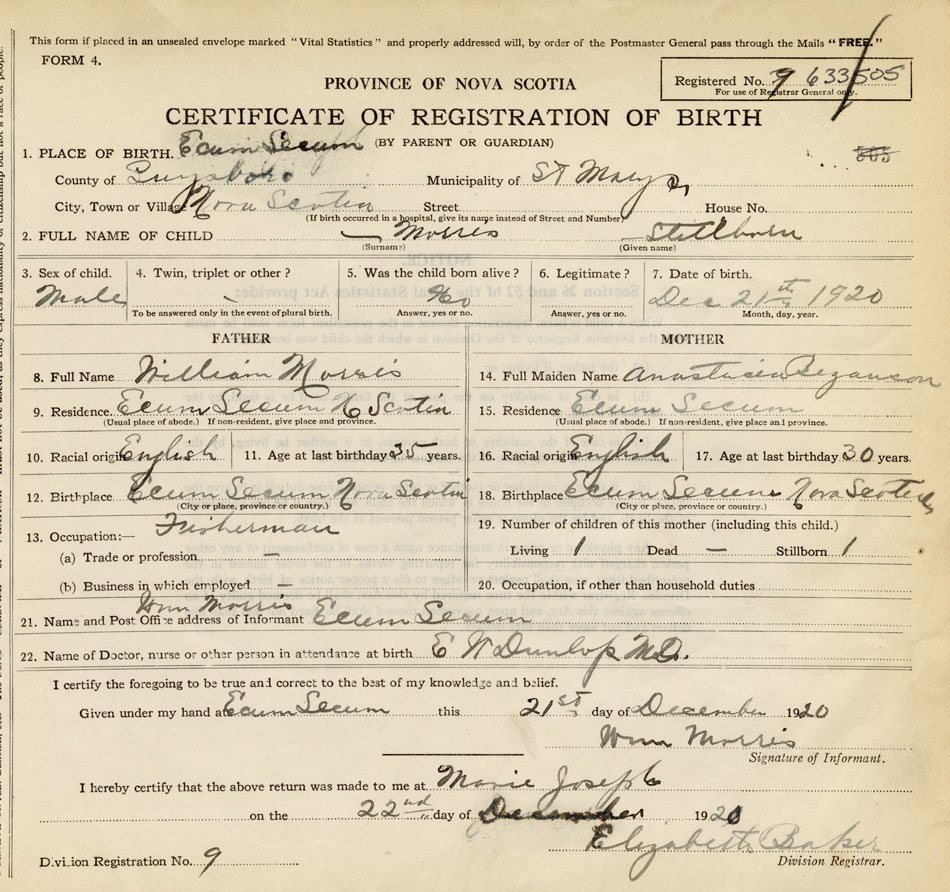 This form if placed in an unsealed envelope marked "Vital Statistics" and properly addressed will, by order of the Postmaster General pass through the Mails "FREE."
FORM 4.
Registered No. 9 633505
For use of Registrar General only.
PROVINCE OF NOVA SCOTIA
CERTIFICATE OF REGISTRATION OF BIRTH
(BY PARENT OR GUARDIAN)
505
1. PLACE OF BIRTH. Ecum Secum
County of Guysboro Municipality of St Marys
City, Town or Village Nova Scotia Street House No.
(If birth occurred in a hospital, give its name instead of Street and Number)
2. FULL NAME OF CHILD — Morris Stillborn
(Surname) (Given name)
3. Sex of child. 4. Twin, triplet or other? 5. Was the child born alive? 6. Legitimate? 7. Date of birth.
Male - No Dec 21th 1920
To be answered only in the event of plural birth. Answer, yes or no. Answer, yes or no. Month, day, year.
FATHER MOTHER
8. Full Name William Morris 14. Full Maiden Name Anastasia Bezanson
9. Residence. Ecum Secum N Scotia 15. Residence Ecum Secum
(Usual place of abode.) If non-resident, give place and province. (Usual place of abode.) If non-resident, give place and province.
10. Racial origin English 11. Age at last birthday 35 years. 16. Racial origin English 17. Age at last birthday 30 years.
12. Birthplace Ecum Secum Nova Scotia 18. Birthplace Ecum Secum Nova Scotia
(City or place, province or country.) (City or place, province or country.)
13. Occupation:— Fisherman 19. Number of children of this mother (including this child.)
(a) Trade or profession — Living 1 Dead — Stillborn 1
(b) Business in which employed — 20. Occupation, if other than household duties
Wm Morris
21. Name and Post Office address of Informant Ecum Secum
22. Name of Doctor, nurse or other person in attendance at birth E W Dunlop M.D.
I certify the foregoing to be true and correct to the best of my knowledge and belief.
Given under my hand at Ecum Secum this 21st day of December 1920
Wm Morris
Signature of Informant.
I hereby certify that the above return was made to me at Marie Joseph
on the 22nd day of December 1920
Elizabeth Baker
Division Registrar.
Division Registration No. 9